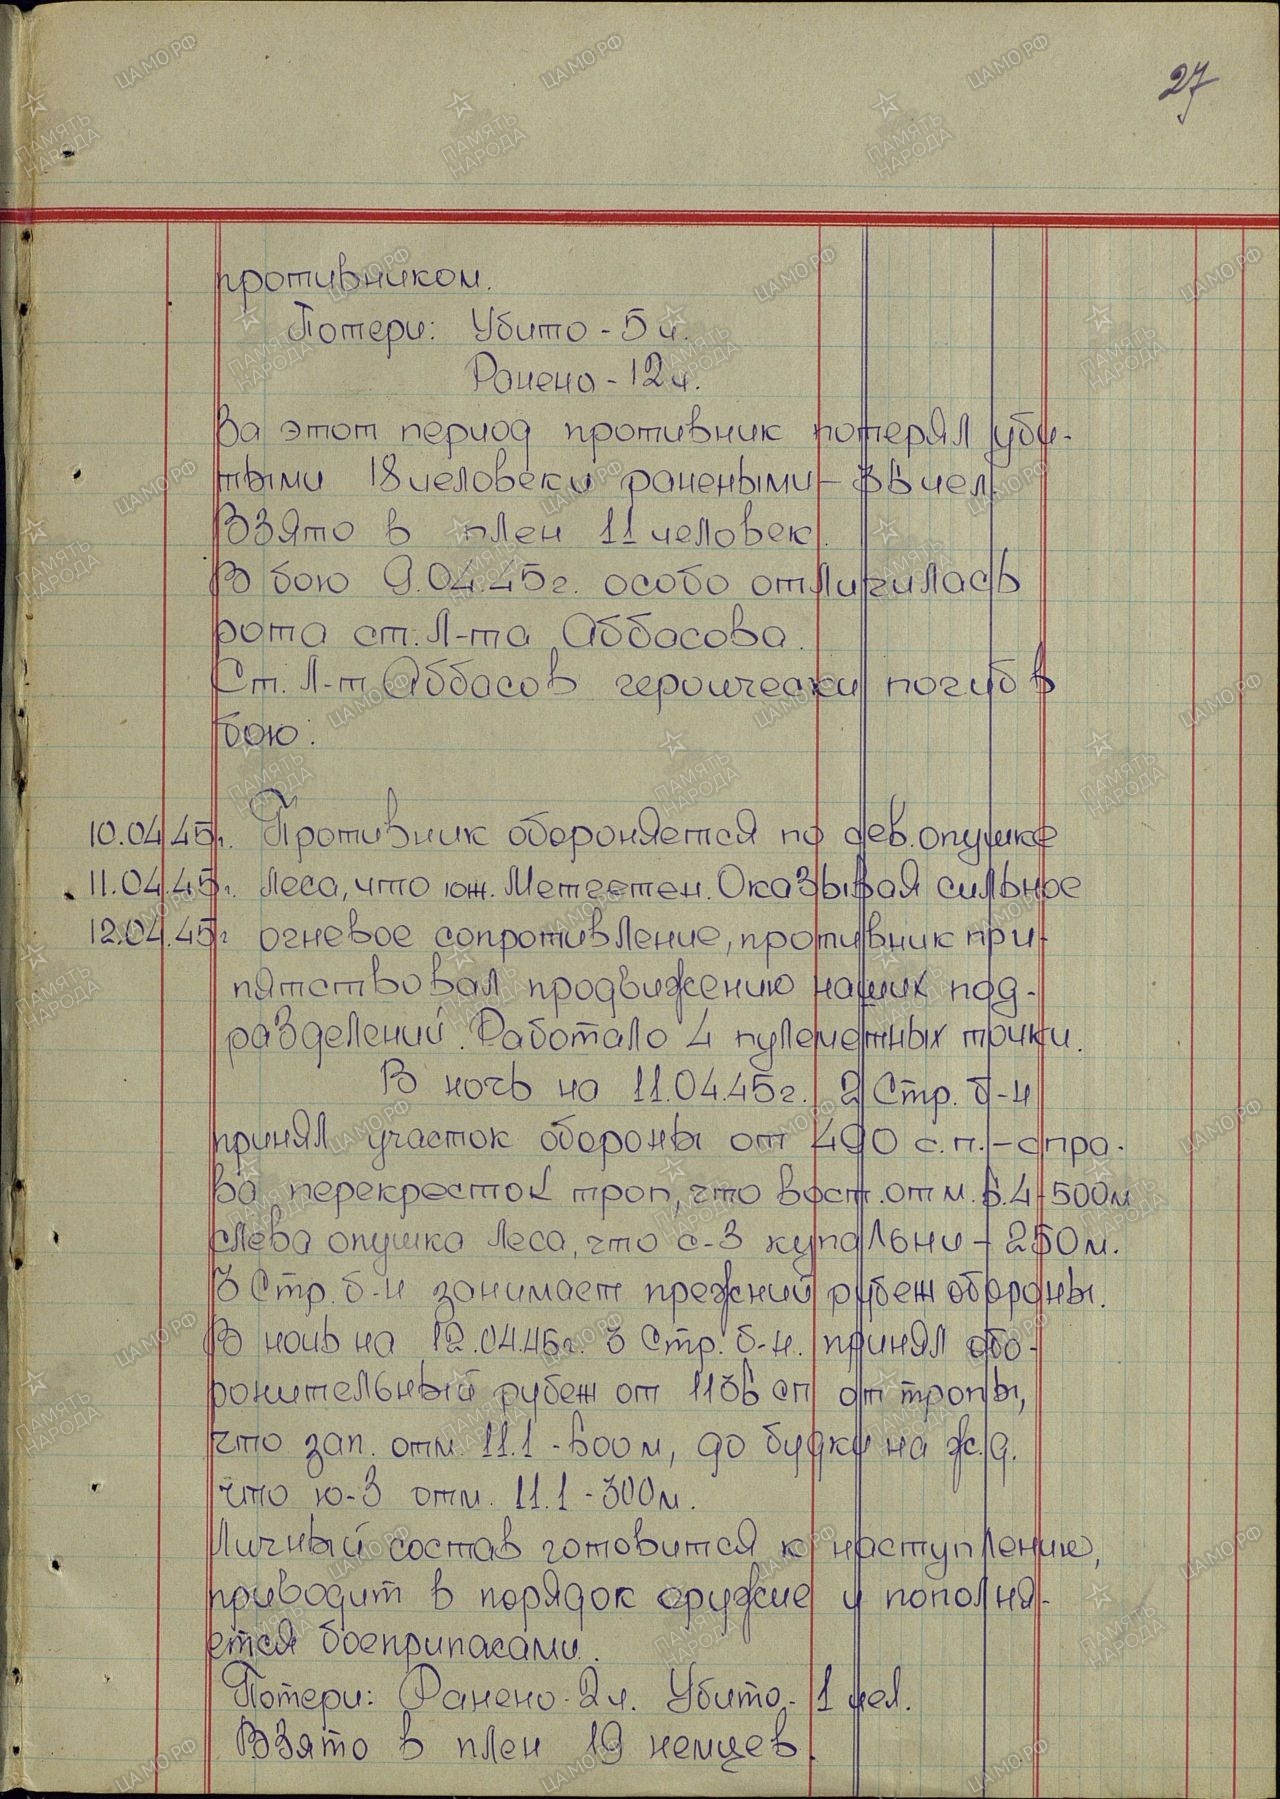 27
противником.
Потери: Убито - 5 ч.
Ранено - 12 ч.
За этот период противник потерял уби-
тыми 18 человек и ранеными - 36 чел.
Взято в плен 11 человек.
В бою 9.04.45г. особо отличилась
рота ст. Л-та Аббасова.
Ст. Л-т Аббасов героически погиб в
бою.
10.04.45г. Противник обороняется по сев. опушке
11.04.45г. леса, что юж. Метгетен. Оказывая сильное
12.04.45г огневое сопротивление, противник при-
пятствовал продвижению наших под-
разделений. Работало 4 пулеметных точки.
В ночь на 11.04.45г. 2 Стр. б-н
принял участок обороны от 490 с.п. - спра-
ва перекресток троп, что вост. отм. 6.4 - 500м
слева опушка леса, что с-з купальни - 250м.
3 Стр. б-н занимает прежний рубеж обороны.
В ночь на 12.04.45г. 3 Стр. б-н. принял обо-
ронительный рубеж от 1136 сп от тропы,
что зап. отм. 11.1 - 600м, до будки на ж.д.
что ю-з отм. 11.1 - 300м.
Личный состав готовится к наступлению,
приводит в порядок оружие и пополня-
ется боеприпасами.
Потери: Ранено - 2ч. Убито - 1 чел.
Взято в плен 19 немцев.
ПАМЯТЬ НАРОДА
ЦАМО.РФ